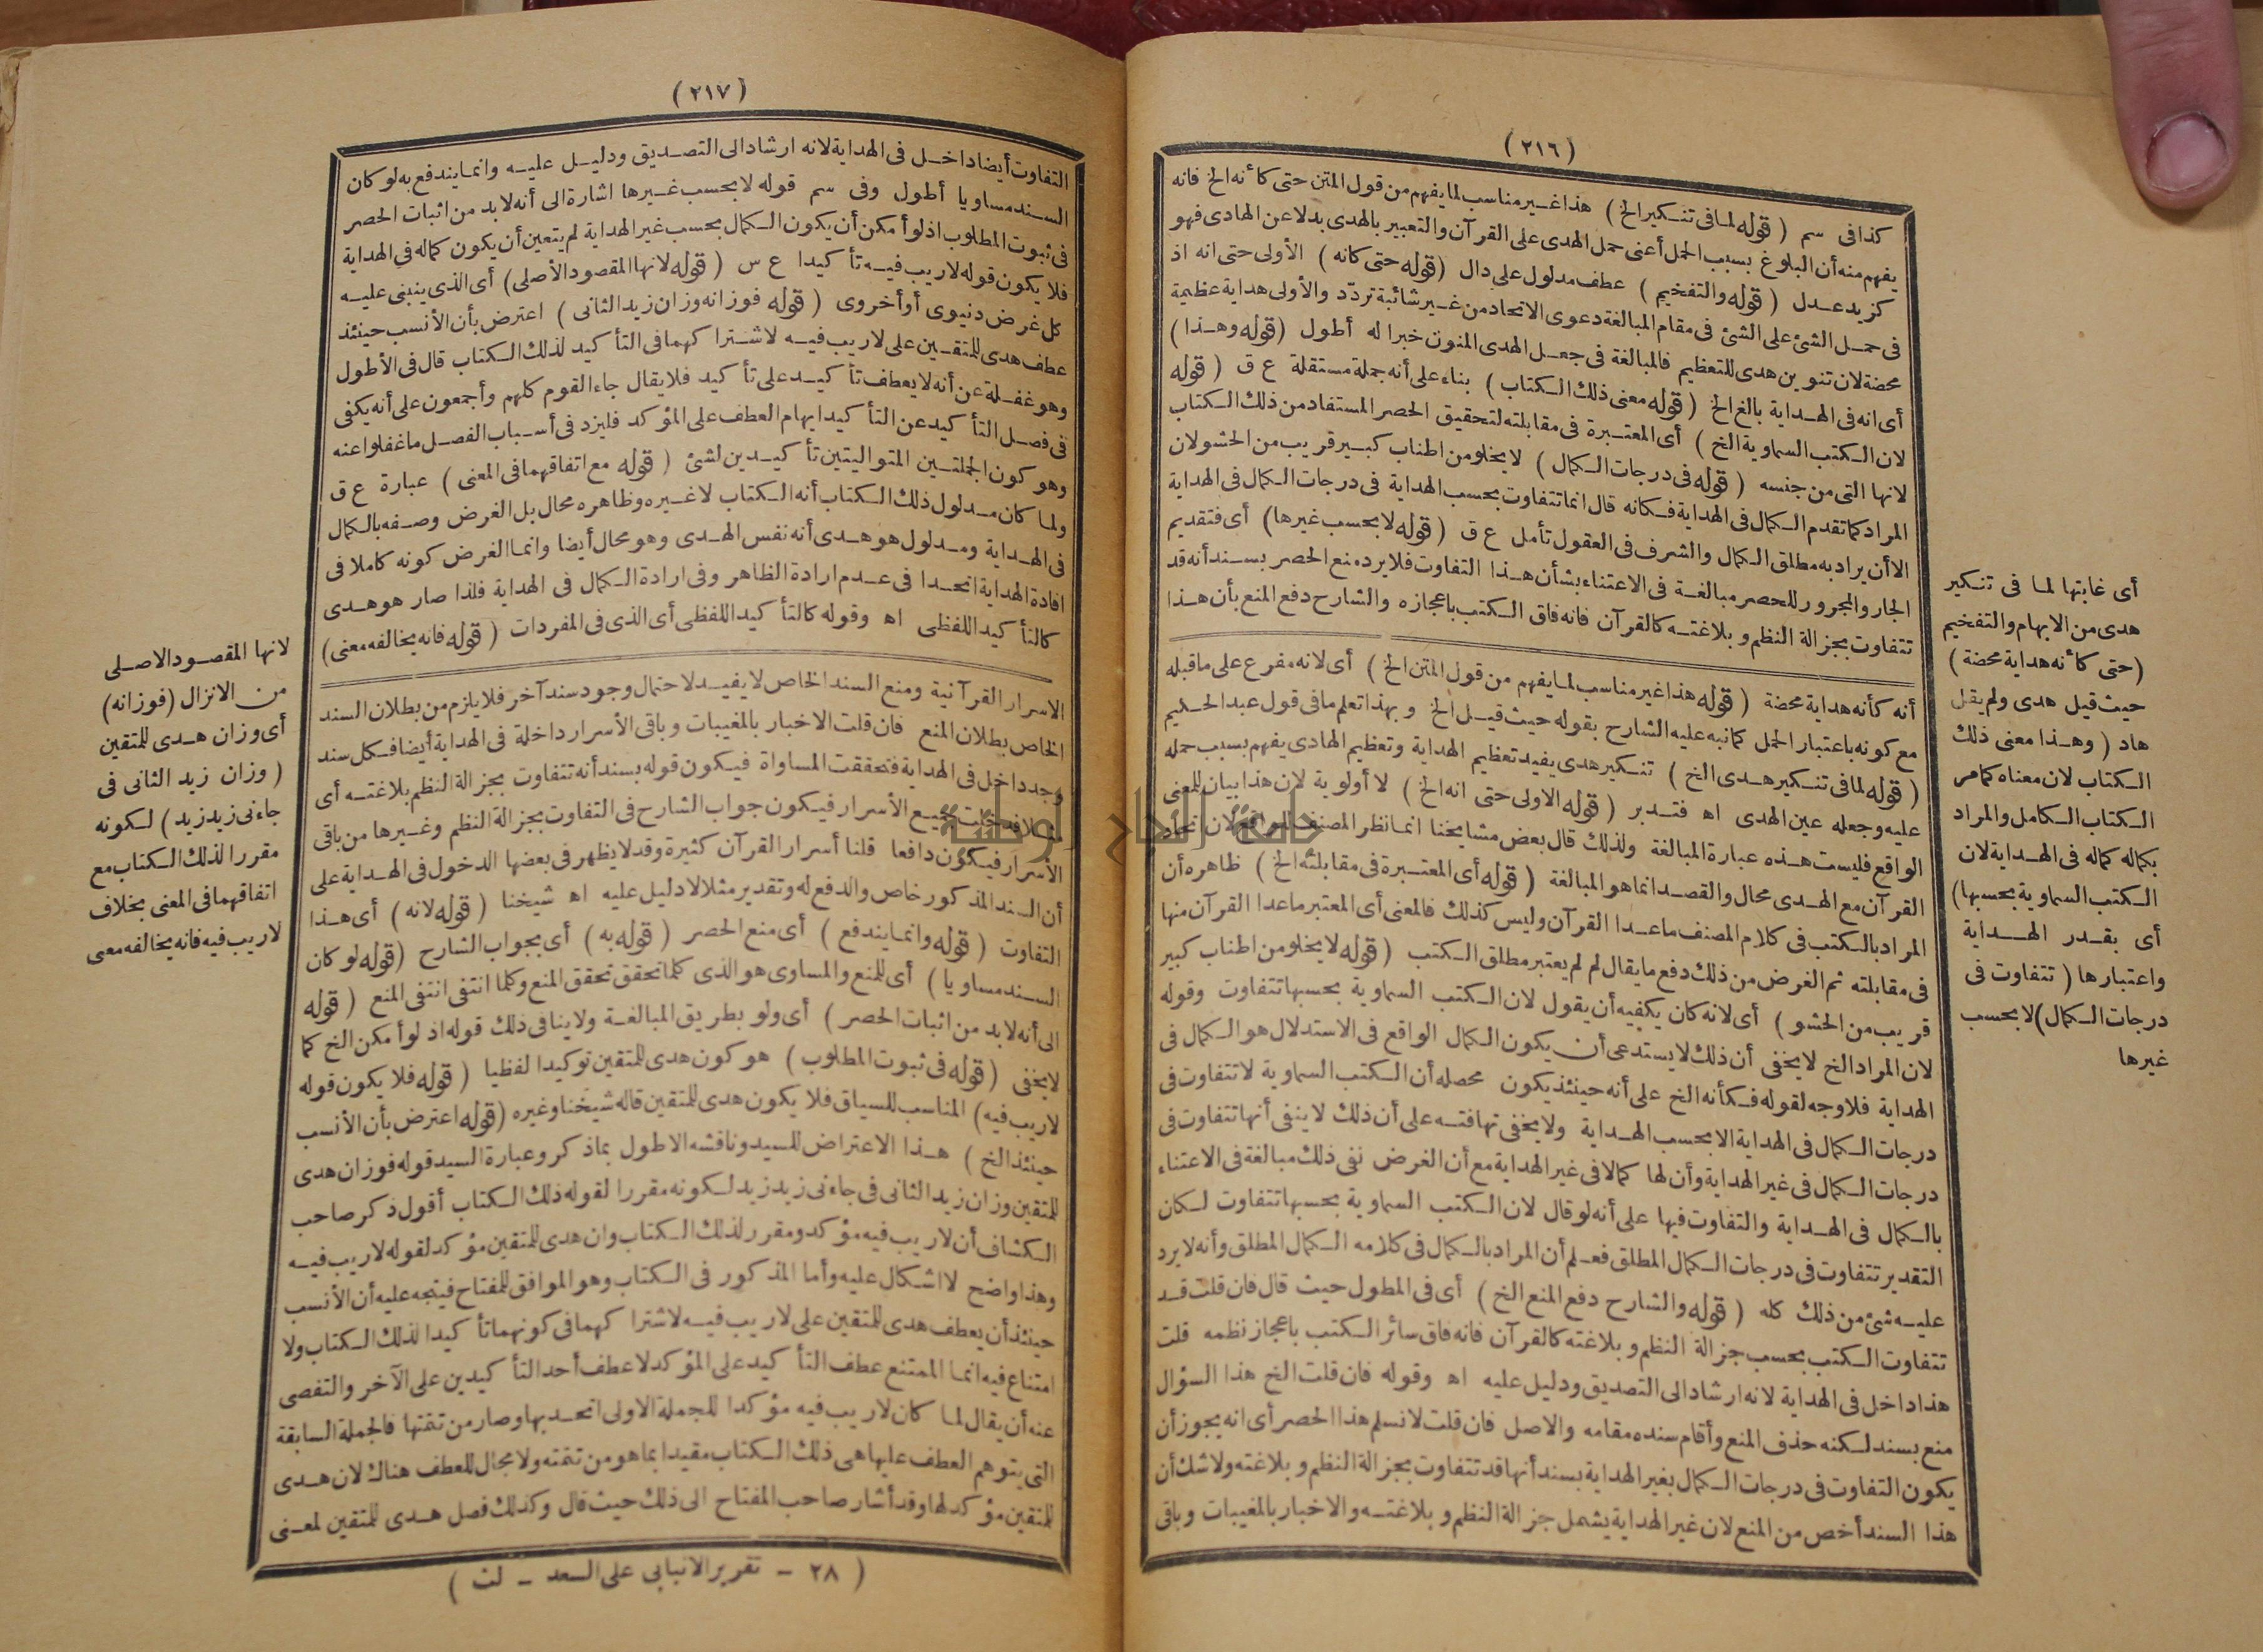 (٢١٦)
كذا فى سم ( قوله لما فى تنكير الخ ) هذا غير مناسب لما يفهم من قول المتن حتى كأنه الخ فانه
يفهم منه أن البلوغ بسبب الحمل أعنى حمل الهدى على القرآن والتعبير بالهدى بدلا عن الهادى فهو
كزيد عدل ( قوله والتفخيم ) عطف مدلول على دال (قوله حتى كانه ) الأولى حتى انه اذ
فى حمل الشئ على الشئ فى مقام المبالغة دعوى الاتحاد من غير شائبة تردّد والأولى هداية عظيمة
محضة لان تنوين هدى للتعظيم فالمبالغة فى جعل الهدى المنون خبرا له أطول (قوله وهذا )
أى انه فى الهداية بالغ الخ ( قوله معنى ذلك الكتاب ) بناء على أنه جملة مستقلة ع ق ( قوله
لان الكتب السماوية الخ ) أى المعتبرة فى مقابلته لتحقيق الحصر المستفاد من ذلك الكتاب
لانها التى من جنسه ( قوله فى درجات الكمال ) لا يخلو من اطناب كبير قريب من الحشو لان
المراد كما تقدم الكمال فى الهداية فكانه قال انما تتفاوت بحسب الهداية فى درجات الكمال فى الهداية
الا أن يراد به مطلق الكمال والشرف فى العقول تأمل ع ق ( قوله لا بحسب غيرها ) أى فتقديم
الجار والمجرور للحصر مبالغة فى الاعتناء بشأن هذا التفاوت فلا يرد منع الحصر بسند أنه قد
تتفاوت بجزالة النظم وبلاغته كالقرآن فانه فاق الكتب باعجازه والشارح دفع المنع بأن هذا
أنه كأنه هداية محضة ( قوله هذا غير مناسب لما يفهم من قول المتن الخ ) أى لانه مفرع على ما قبله
مع كونه باعتبار الحمل كما نبه عليه الشارح بقوله حيث قيل الخ وبهذا تعلم ما فى قول عبد الحكيم
( قوله لما فى تنكير هدى الخ ) تنكير هدى يفيد تعظيم الهداية وتعظيم الهادى يفهم بسبب حمله
عليه وجعله عين الهدى اه فتدبر ( قوله الاولى حتى انه الخ ) لا أولوية لان هذا بيان للمعنى
الواقع فليست هذه عبارة المبالغة ولذلك قال بعض مشايخنا انما نظر المصنف للواقع لان اتحاد
القرآن مع الهدى محال والقصد انما هو المبالغة ( قوله أى المعتبرة فى مقابلته الخ ) ظاهره أن
المراد بالكتب فى كلام المصنف ماعدا القرآن وليس كذلك فالمعنى أى المعتبر ماعدا القرآن منها
فى مقابلته ثم الغرض من ذلك دفع ما يقال لم لم يعتبر مطلق الكتب ( قوله لا يخلو من اطناب كبير
قريب من الحشو ) أى لانه كان يكفيه أن يقول لان الكتب السماوية بحسبها تتفاوت وقوله
لان المراد الخ لا يخفى أن ذلك لا يستدعى أن يكون الكمال الواقع فى الاستدلال هو الكمال فى
الهداية فلا وجه لقوله فكأنه الخ على أنه حينئذ يكون محصله أن الكتب السماوية لا تتفاوت فى
درجات الكمال فى الهداية الا بحسب الهداية ولا يخفى تهافته على أن ذلك لا ينفى أنها تتفاوت فى
درجات الكمال فى غير الهداية وأن لها كمالا فى غير الهداية مع أن الغرض نفى ذلك مبالغة فى الاعتناء
بالكمال فى الهداية والتفاوت فيها على أنه لو قال لان الكتب السماوية بحسبها تتفاوت لكان
التقدير تتفاوت فى درجات الكمال المطلق فعلم أن المراد بالكمال فى كلامه الكمال المطلق وأنه لا يرد
عليه شئ من ذلك كله ( قوله والشارح دفع المنع الخ ) أى فى المطول حيث قال فان قلت قد
تتفاوت الكتب بحسب جزالة النظم وبلاغته كالقرآن فانه فاق سائر الكتب باعجاز نظمه قلت
هذا داخل فى الهداية لانه ارشاد الى التصديق ودليل عليه اه وقوله فان قلت الخ هذا السؤال
منع بسند لكنه حذف المنع وأقام سنده مقامه والاصل فان قلت لا نسلم هذا الحصر أى انه يجوز أن
يكون التفاوت فى درجات الكمال بغير الهداية بسند أنها قد تتفاوت بجزالة النظم وبلاغته ولا شك أن
هذا السند أخص من المنع لان غير الهداية يشمل جزالة النظم وبلاغته والاخبار بالمغيبات وباقى
أى غايتها لما فى تنكير
هدى من الابهام والتفخيم
(حتى كأنه هداية محضة )
حيث قيل هدى ولم يقل
هاد ( وهذا معنى ذلك
الكتاب لان معناه كما مر
الكتاب الكامل والمراد
بكماله كماله فى الهداية لان
الكتب السماوية بحسبها)
أى بقدر الهداية
واعتبارها ( تتفاوت فى
درجات الكمال) لا بحسب
غيرها
(٢١٧)
التفاوت أيضا داخل فى الهداية لانه ارشاد الى التصديق ودليل عليه وانما يندفع به لو كان
السند مساويا أطول وفى سم قوله لا بحسب غيرها اشارة الى أنه لا بد من اثبات الحصر
فى ثبوت المطلوب اذ لو أمكن أن يكون الكمال بحسب غير الهداية لم يتعين أن يكون كماله فى الهداية
فلا يكون قوله لا ريب فيه تأكيدا ع س ( قوله لانها المقصود الأصلى ) أى الذى ينبنى عليه
كل غرض دنيوى أو أخروى ( قوله فوزانه وزان زيد الثانى ) اعترض بأن الأنسب حينئذ
عطف هدى للمتقين على لا ريب فيه لاشتراكهما فى التأكيد لذلك الكتاب قال فى الأطول
وهو غفلة عن أنه لا يعطف تأكيد على تأكيد فلا يقال جاء القوم كلهم وأجمعون على أنه يكفى
فى فصل التأكيد عن التأكيد ايهام العطف على المؤكد فليزد فى أسباب الفصل ما غفلوا عنه
وهو كون الجملتين المتواليتين تأكيدين لشئ ( قوله مع اتفاقهما فى المعنى ) عبارة ع ق
ولما كان مدلول ذلك الكتاب أنه الكتاب لا غيره وظاهره محال بل الغرض وصفه بالكمال
فى الهداية ومدلول هو هدى أنه نفس الهدى وهو محال أيضا وانما الغرض كونه كاملا فى
افادة الهداية اتحدا فى عدم ارادة الظاهر وفى ارادة الكمال فى الهداية فلذا صار هو هدى
كالتأكيد اللفظى اه وقوله كالتأكيد اللفظى أى الذى فى المفردات ( قوله فانه يخالفه معنى)
الاسرار القرآنية ومنع السند الخاص لا يفيد لاحتمال وجود سند آخر فلا يلزم من بطلان السند
الخاص بطلان المنع فان قلت الاخبار بالمغيبات وباقى الأسرار داخلة فى الهداية أيضا فكل سند
وجد داخل فى الهداية فتحققت المساواة فيكون قوله بسند أنه تتفاوت بجزالة النظم بلاغته أى
مثلا فدخلت جميع الأسرار فيكون جواب الشارح فى التفاوت بجزالة النظم وغيرها من باقى
الأسرار فيكون دافعا قلنا أسرار القرآن كثيرة وقد لا يظهر فى بعضها الدخول فى الهداية على
أن السند المذكور خاص والدفع له وتقدير مثلا لا دليل عليه اه شيخنا ( قوله لانه ) أى هذا
التفاوت ( قوله وانما يندفع ) أى منع الحصر ( قوله به ) أى بجواب الشارح (قوله لو كان
السند مساويا ) أى للمنع والمساوى هو الذى كلما تحقق تحقق المنع وكلما انتفى انتفى المنع ( قوله
الى أنه لا بد من اثبات الحصر ) أى ولو بطريق المبالغة ولا ينافى ذلك قوله اذ لو أمكن الخ كما
لا يخفى ( قوله فى ثبوت المطلوب ) هو كون هدى للمتقين توكيدا لفظيا ( قوله فلا يكون قوله
لا ريب فيه) المناسب للسياق فلا يكون هدى للمتقين قاله شيخنا وغيره (قوله اعترض بأن الأنسب
حينئذ الخ ) هذا الاعتراض للسيد وناقشه الاطول بما ذكر وعبارة السيد قوله فوزان هدى
للمتقين وزان زيد الثانى فى جاءنى زيد زيد لكونه مقررا لقوله ذلك الكتاب أقول ذكر صاحب
الكشاف أن لا ريب فيه مؤكد ومقرر لذلك الكتاب وان هدى للمتقين مؤكد لقوله لا ريب فيه
وهذا واضح لا اشكال عليه وأما المذكور فى الكتاب وهو الموافق للمفتاح فيتجه عليه أن الأنسب
حينئذ أن يعطف هدى للمتقين على لا ريب فيه لاشتراكهما فى كونهما تأكيدا لذلك الكتاب ولا
امتناع فيه انما الممتنع عطف التأكيد على المؤكد لا عطف أحد التأكيدين على الآخر والتفصى
عنه أن يقال لما كان لا ريب فيه مؤكدا للجملة الاولى اتحد بها وصار من تتمتها فالجملة السابقة
التى يتوهم العطف عليها هى ذلك الكتاب مقيدا بما هو من تتمته ولا مجال للعطف هناك لان هدى
للمتقين مؤكد لها وقد أشار صاحب المفتاح الى ذلك حيث قال وكذلك فصل هدى للمتقين لمعنى
لانها المقصود الاصلى
من الانزال (فوزانه)
أى وزان هدى للمتقين
( وزان زيد الثانى فى
جاءنى زيد زيد ) لكونه
مقررا لذلك الكتاب مع
اتفاقهما فى المعنى بخلاف
لا ريب فيه فانه يخالفه معنى
( ٢٨ - تقرير الانبابى على السعد - لث )